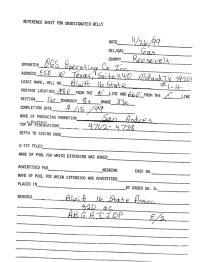 REFERENCE SHEET FOR UNDESIGNATED WELLS
DATE 4/26/99
OIL/GAS Gas
COUNTY Roosevelt
OPERATOR AGS Operating Co Inc
ADDRESS 550 W Texas, Suite 440 Midland Tx 79701
LEASE NAME, WELL NO. Alwitt 16 State #1-H
FOOTAGE LOCATION 990 FROM THE N LINE AND 660 FROM THE E LINE
SECTION 16 TOWNSHIP 8s RANGE 37e
COMPLETION DATE 3/15/99
NAME OF PRODUCING FORMATION San Andres
TOP OF PERFORATIONS 4702-4738
DEPTH TO CASING SHOE
C-123 FILED
NAME OF POOL FOR WHICH EXTENSION WAS ASKED
ADVERTISED FOR HEARING CASE NO.
NAME OF POOL FOR WHICH EXTENSION WAS ADVERTISED
PLACED IN BY ORDER NO. R-
REMARKS Alwitt 16 State Assoc
320 ac
ABGHIJOP E/2